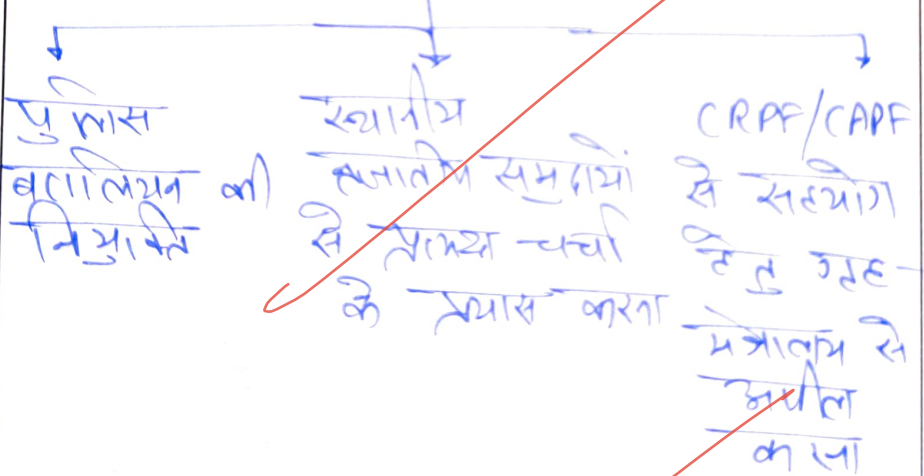 पुलिस
बटालियन की
नियुक्ति
स्थानीय
जनजातीय समुदायों
से प्रत्यक्ष चर्चा
के प्रयास करना
CRPF/CAPF
से सहयोग
हेतु गृह-
मंत्रालय से
अपील
करना